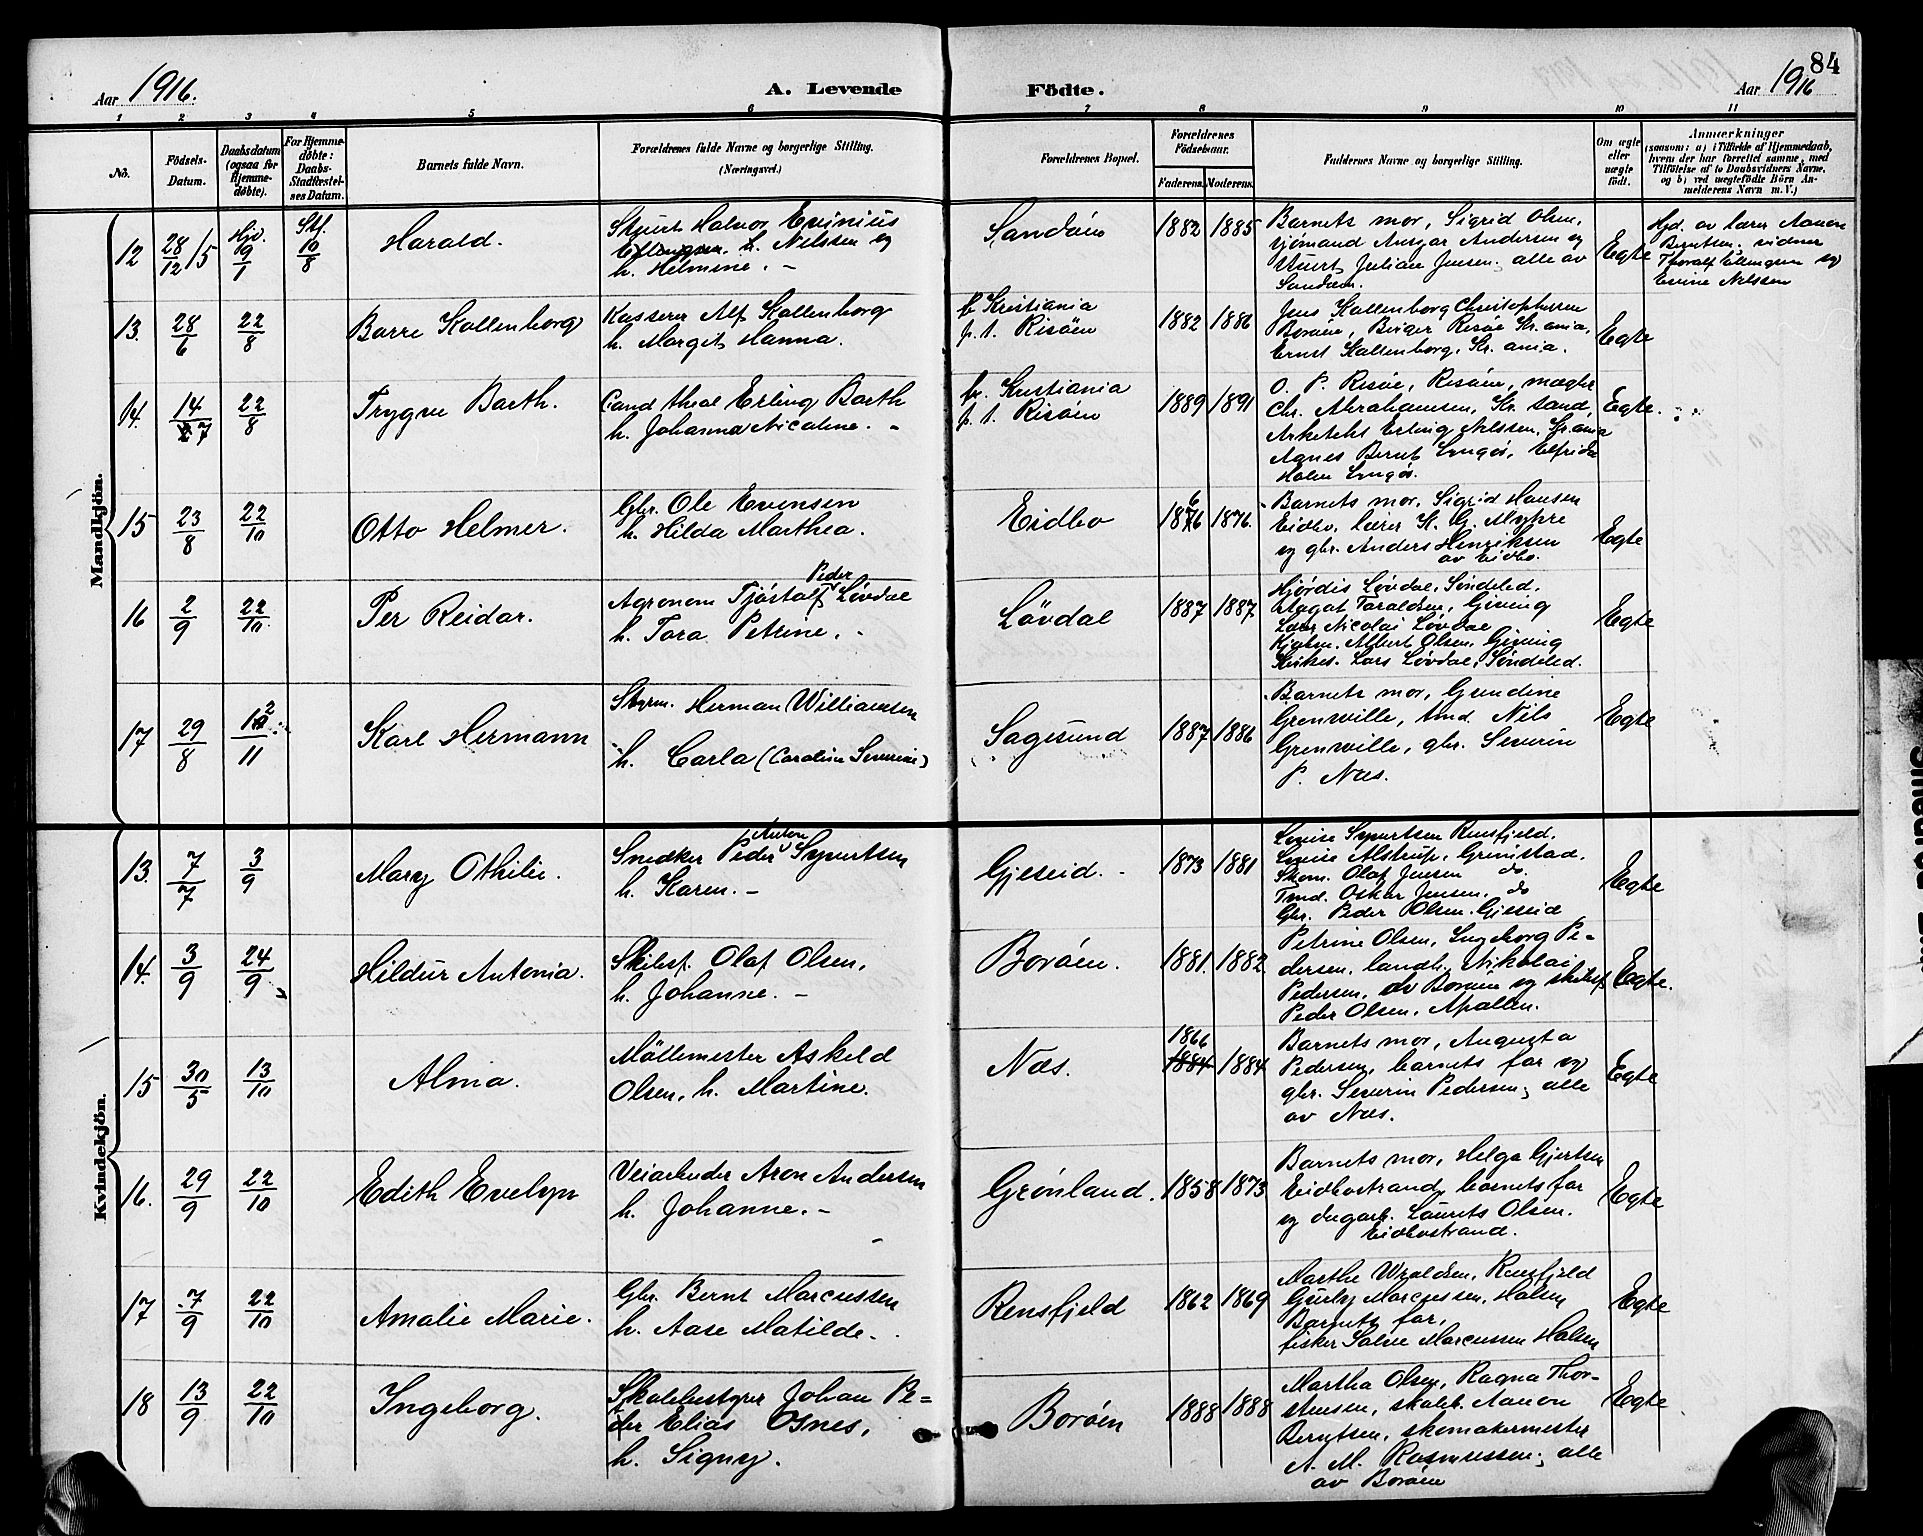 84
Aar 1916.
A. Levende Födte.
Aar 1916
1 2 3 4 5 6 7 8 9 10 11
No.
Födsels-Datum.
Daabsdatum (ogsaa for Hjemme-döbte).
For Hjemme-döbte: Daabs-Stadfæstel-ses Datum.
Barnets fulde Navn.
Forældrenes fulde Navne og borgerlige Stilling.
(Næringsvei.)
Forældrenes Bopæl.
Forældrenes Födselsaar.
Faderens. Moderens.
Faddernes Navne og borgerlige Stilling.
Om ægte eller uægte födt.
Anmærkninger
(saasom: a) i Tilfælde af Hjemmedaab, hvem der har forrettet samme, med Tilföielse af to Daabsvidners Navne, og b) ved uægtefödte Börn An-melderens Navn m. V.)
Mandkjön.
12 28/12 15 Hjd. 19/1 Stf. 10/8 Harald.
Halvor Evinius
h. Nilssen og
h. Helmine. -
Sandöen 1882 1885
Barnets mor, Sigrid Olsen,
sjömand Ansgar Andersen og
Julian Jensen. alle av
Sandöen.
Egte
Hjd. av lærer Aanon
Berntsen. vidner
Thoralf Ellingsen og
Evine Nilssen
13. 28/6 22/8 Barre Kallenborg
Kasserer Alf Kallenborg
h. Margit Hanna.
fr Kristiania
p. t. Risöen
1882 1886
Jens Kallenborg Christophersen
Boröen, Birger Risöe Kr. ania,
Ernst Kallenborg, Kr. ania.
Egte
14. 14/7 22/8 Trygve Barth.
Cand theol Erling Barth
h. Johanna Nicoline. -
fr. Kristiania
p. t. Risöen
1889 1891
O. P. Risöe, Risöen, mægler
Chr. Abrahamsen, Kr. sand,
Arkitekt Erling Nilssen, Kr. ania
Agnes Bernt Lyngör, Elfrida
Holm Lyngör.
Egte.
15 23/8 22/10 Otto Helmer.
Gbr. Ole Evensen
h. Hilda Marthea.
Eidbo 1876 1876.
Barnets mor, Sigrid Hansen
Eidbo, lærer K. G. Myhre
og gbr. Anders Henriksen
av Eidbo.
Egte
16 2/9 22/10. Per Reidar.
Peder
Agronom Tjöstolf Lövdal
h. Tora Petrine. -
Lövdal 1887 1887
Hjördis Lövdal, Söndeled,
Aagot Taraldsen, Gjeving
Lærer Nicolai Lövdal
Albert Olsen, Gjeving
Lars Lövdal, Söndeled.
Egte
17 29/8 12/11 Karl Hermann
Styrm. Herman Williamsen
h. Carla (Caroline Severine)
Sagesund 1887 1886
Barnets mor, Gundine
Grenwille, tmd. Nils
Grenwille, gbr. Severin
P. Næs.
Egte
Kvindekjön.
13. 7/7 3/9 Mary Othilie.
Anton
Snedker Peder Syvertsen
h. Karen. -
Gjeseid. - 1873 1881
Louise Syvertsen Rensfjeld.
Louise Alstrup, Grimstad.
Skom. Olaf Jensen do.
Tmd. Oskar Jensen. do
Gbr. Peder Olsen. Gjeseid
Egte
14. 3/9 24/9 Hildur Antonia.
Skibsf. Olaf Olsen,
h. Johanne. -
Boröen. 1881. 1882
Petrine Olsen, Ingeborg Pe-
dersen, landh. Nikolai
Pedersen, av Boröen og skibsf
Peder Olsen, Apallen.
Egte.
15 30/5 13/10 Alma.
Möllemester Askild
Olsen, h. Martine.
Næs. 1866 1884 1884
Barnets mor, Augusta
Pedersen, barnets far og
gbr. Severin Pedersen; alle
av Næs.
Egte
16. 29/9 22/10 Edith Evelyn
Veiarbeider Aron Andersen
h. Johanne. -
Grönland. 1858 1873
Barnets mor, Helga Gjertsen
Eidbostrand, barnets far
og dagarb. Laurits Olsen.
Eidbostrand.
Egte
17 7/9 22/10 Amalie Marie.
Gbr. Bernt Marcussen
h. Aase Matilde.
Rensfjeld 1862 1869
Marthe Wroldsen, Rensfjeld
Gurly Marcussen, Halsen
Barnets far,
fisker Salve Marcussen Halsen
Egte
18 13/9 22/10 Ingeborg.
Skolebestyrer Johan Pe=
der Elias Osnes,
h. Signy.
Boröen 1888 1888
Martha Olsen, Ragna Thor-
stensen, skoleb. Aanon
Berntsen, skomakermester
A. M. Rasmussen; alle
av Boröen
Egte